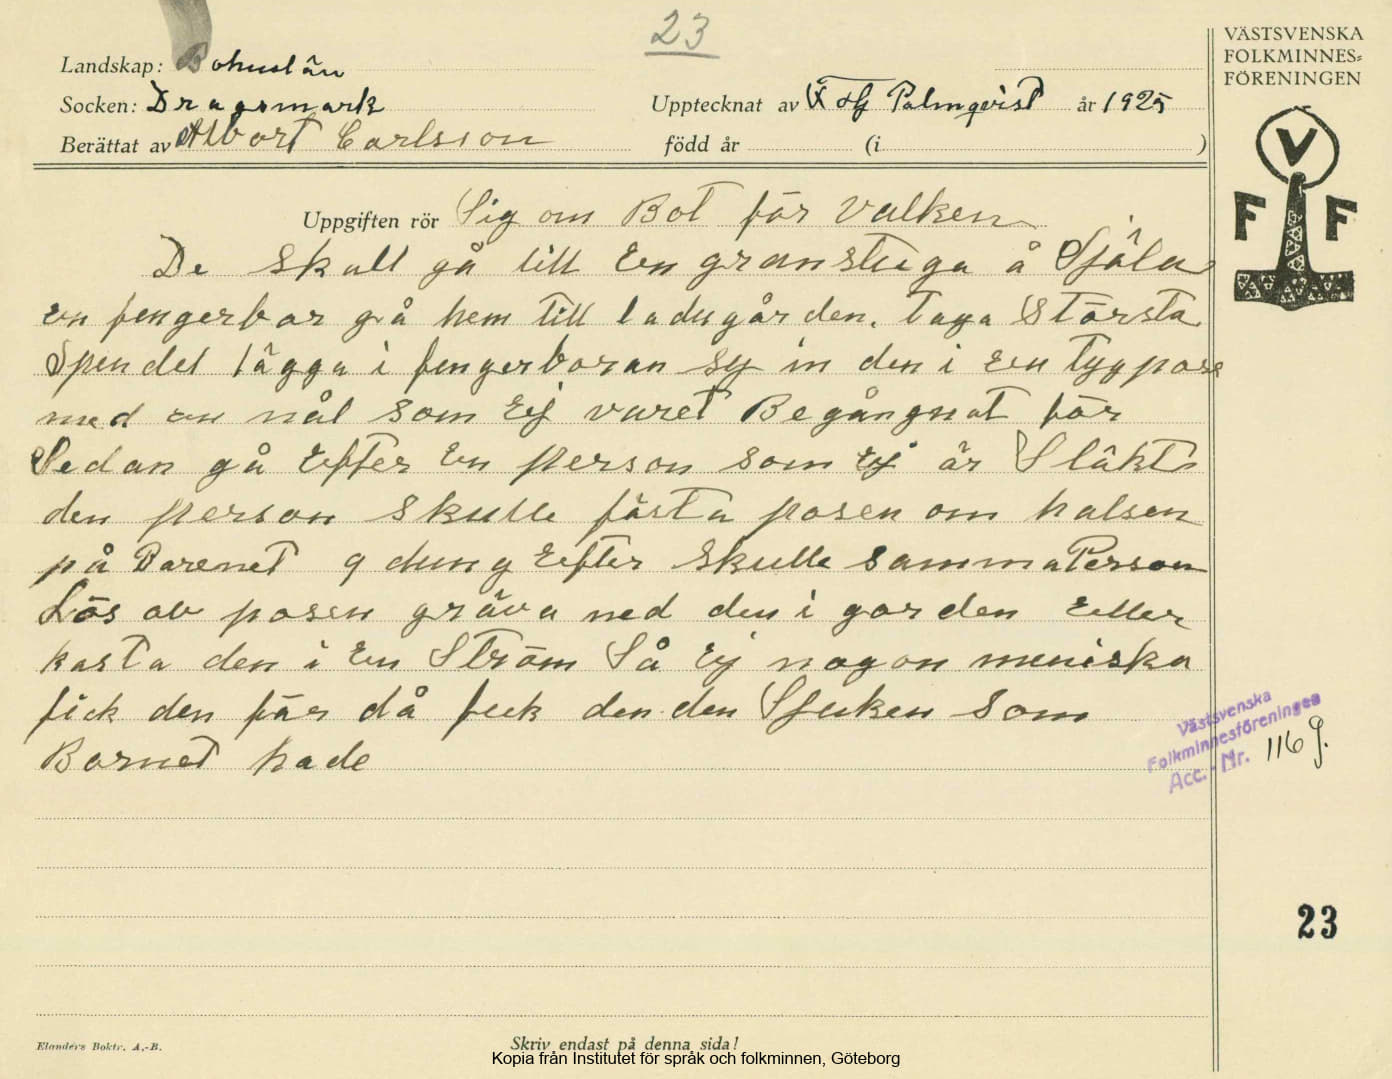 23
VÄSTSVENSKA
FOLKMINNES=
FÖRENINGEN
Landskap: Bohuslän
Socken: Dragsmark
Upptecknat av Folg Palmqvist år 1925
Berättat av Albort Carlsson
född år (i )
V
F F
Uppgiften rör Sig om Bot för Valken
De skall gå till En granstuga å Själa
en fengerbor gå hem till ladugården. taga Största
Spendel lägga i fengerboran sy in den i en tygpose
med en nål som Ej varet Begångnat för
Sedan gå Efter En person som Ej är Släkt
den person skulle fästa posen om halsen
på Barenet 9 dung Eefter skulle samma Person
Lös av posen gräva ned den i gorden Eeller
kasta den i En Ström Så Ej nogon meniska
fick den för då feck den den Sjuken som
Bornet hade
Västsvenska
Folkminnesföreningen
Acc.-Nr. 1169.
23
Elanders Boktr. A.-B.
Skriv endast på denna sida!
Kopia från Institutet för språk och folkminnen, Göteborg